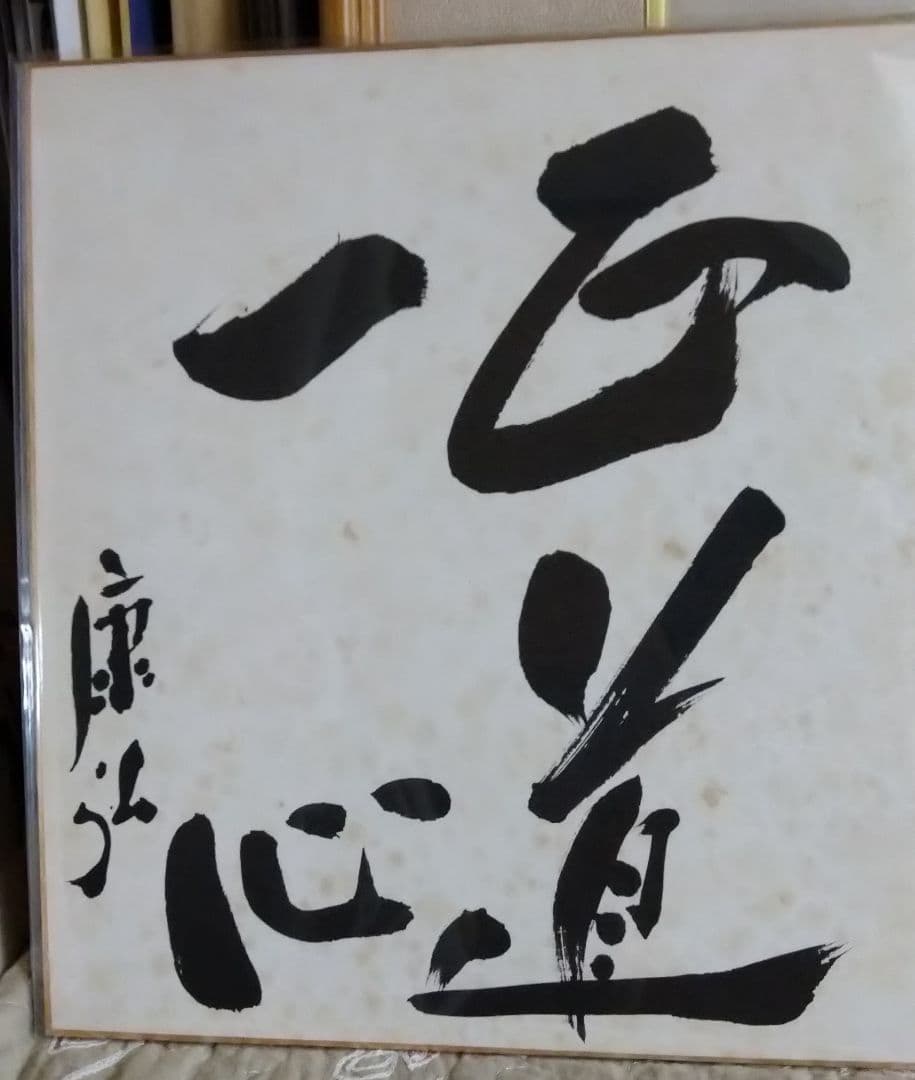 道
一心
康弘